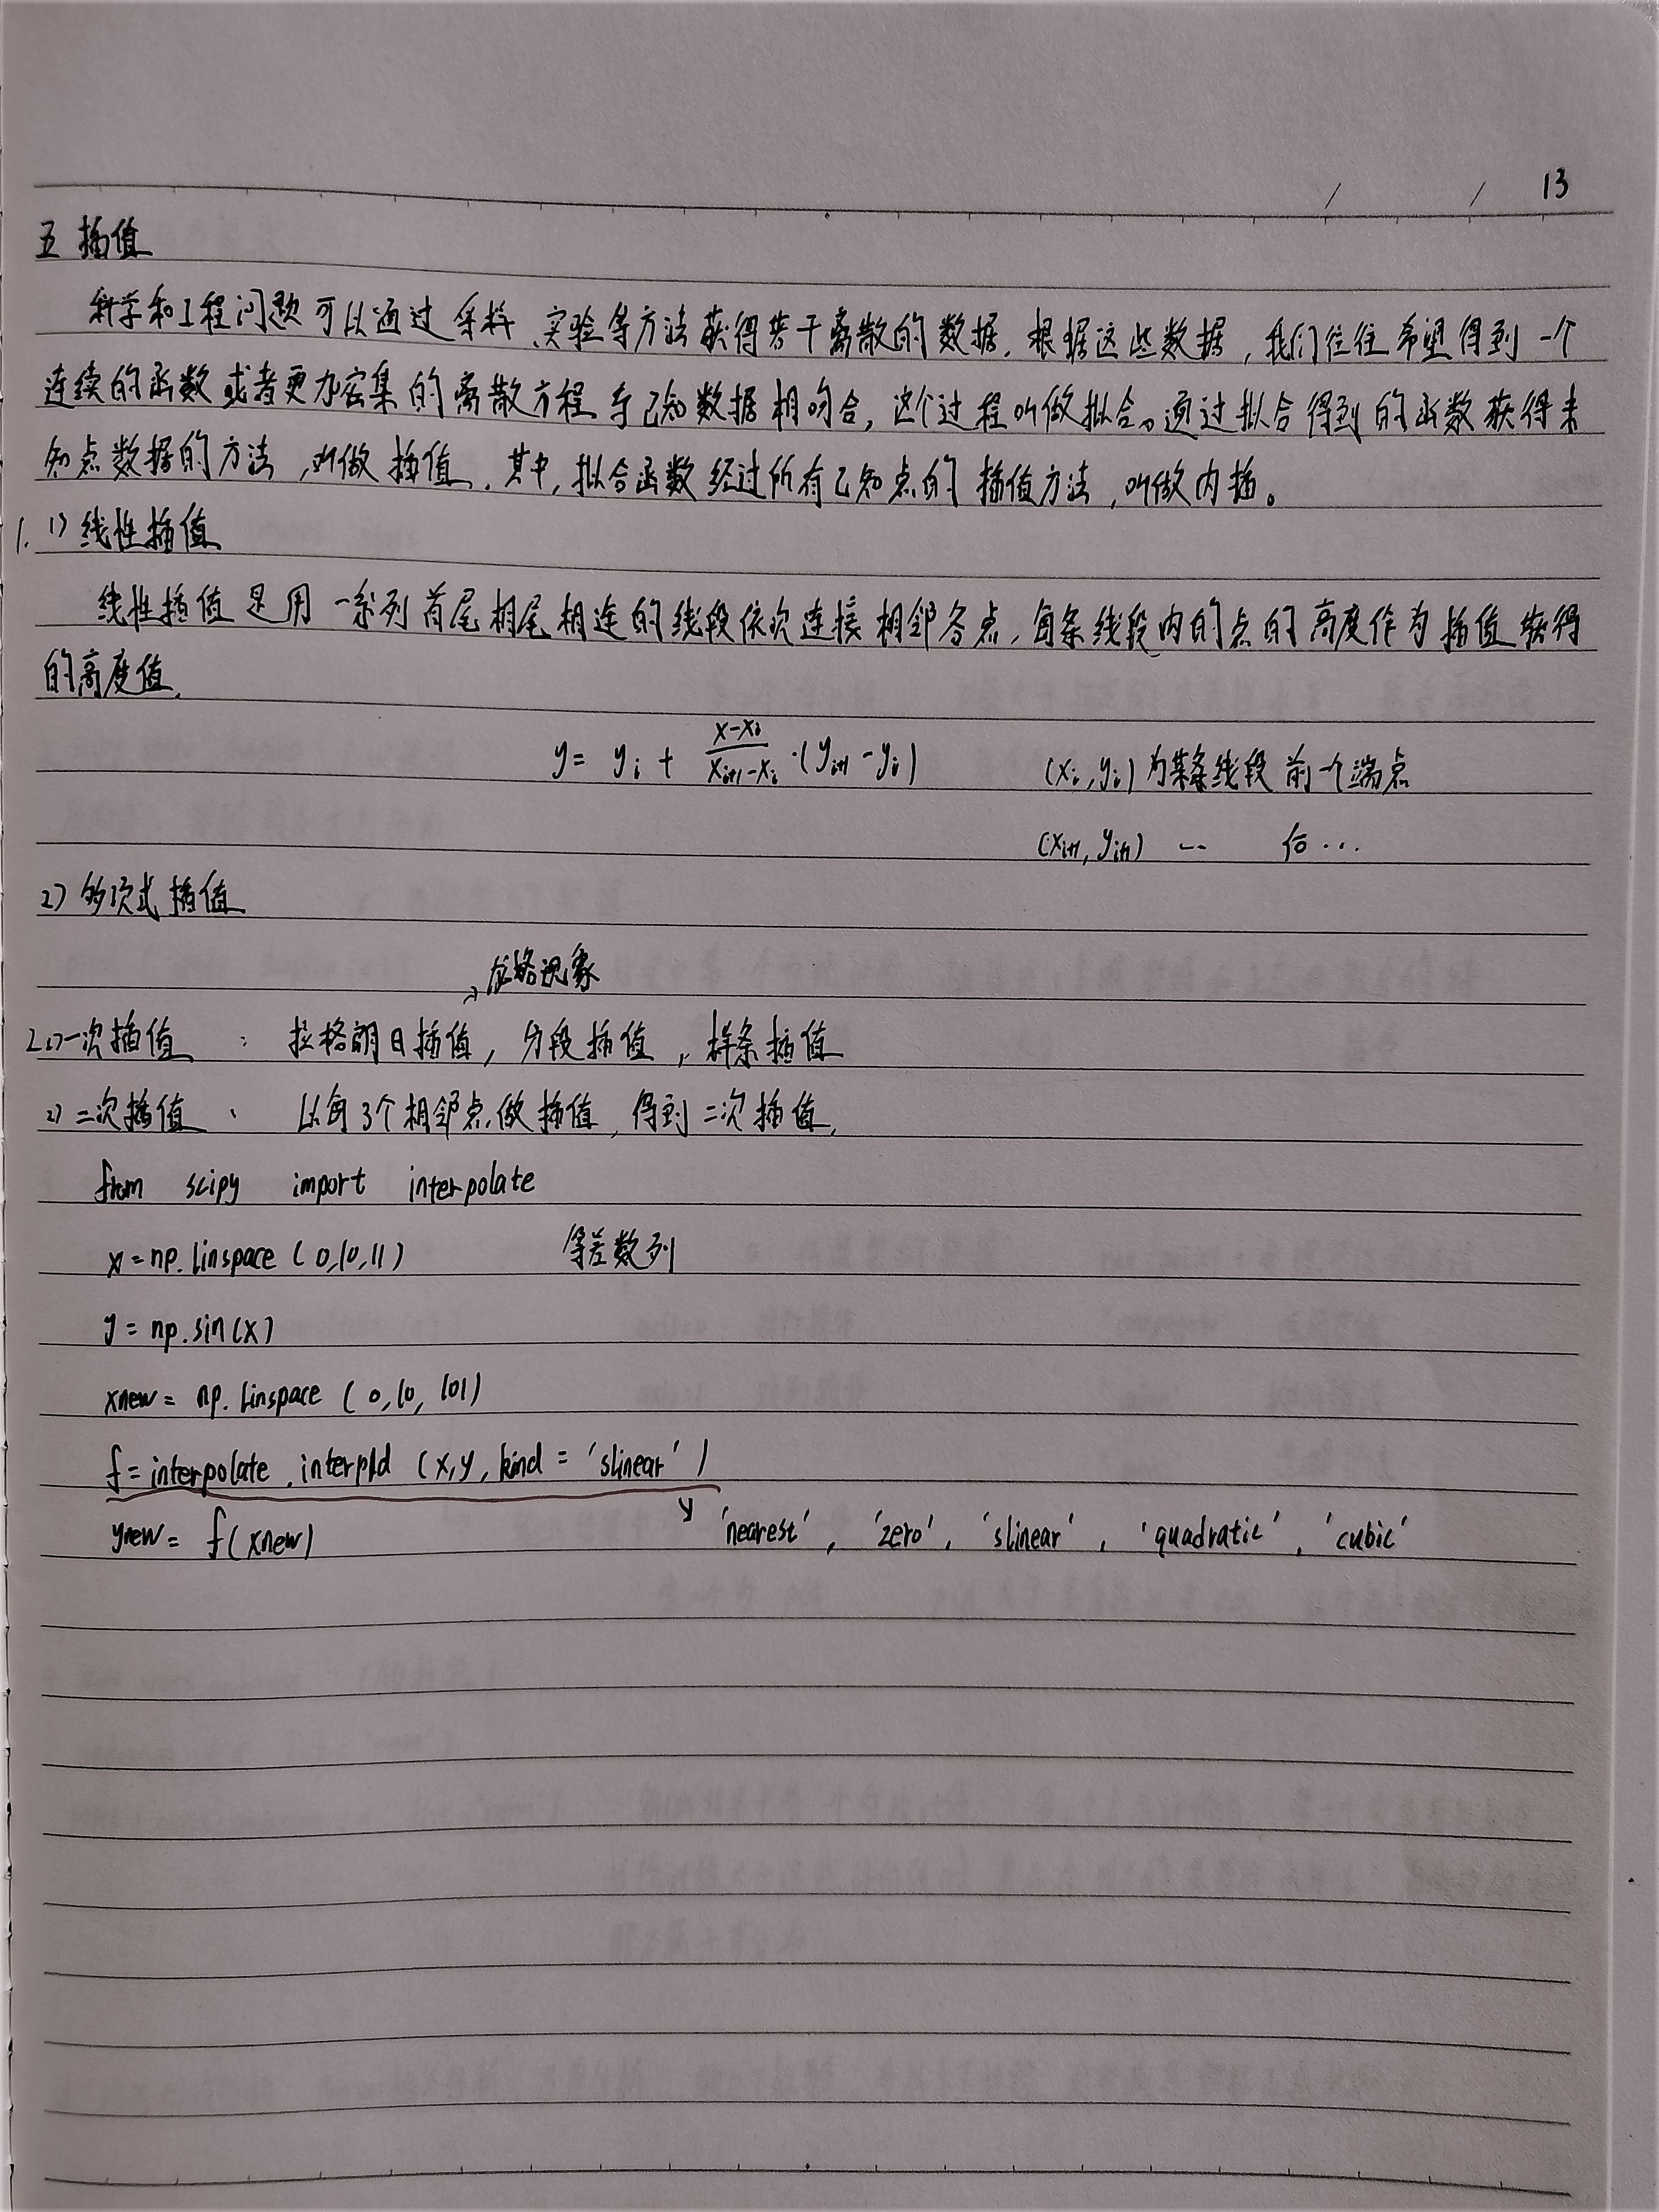 13
五 插值
科学和工程问题可以通过采样、实验等方法获得若干离散的数据. 根据这些数据, 我们往往希望得到一个
连续的函数或者更加密集的离散方程与已知数据相吻合, 这个过程叫做拟合。通过拟合得到的函数获得未
知点数据的方法, 叫做插值. 其中, 拟合函数经过所有已知点的插值方法, 叫做内插。
1. 1) 线性插值
线性插值是用一系列首尾相尾相连的线段依次连接相邻各点, 每条线段内的点的高度作为插值获得
的高度值.
y = yi + (x-xi)/(xi+1-xi) · (yi+1 - yi) (xi, yi) 为某条线段前一个端点
(xi+1, yi+1) ... 后 ...
2) 多项式插值
龙格现象
2. 1) 一次插值 : 拉格朗日插值, 分段插值, 样条插值
2) 二次插值 : 以每3个相邻点做插值, 得到二次插值.
from scipy import interpolate
x = np.linspace (0,10,11) 等差数列
y = np.sin(x)
xnew = np.linspace (0,10,101)
f = interpolate.interp1d (x,y, kind = 'slinear')
ynew = f(xnew) 'nearest', 'zero', 'slinear', 'quadratic', 'cubic'